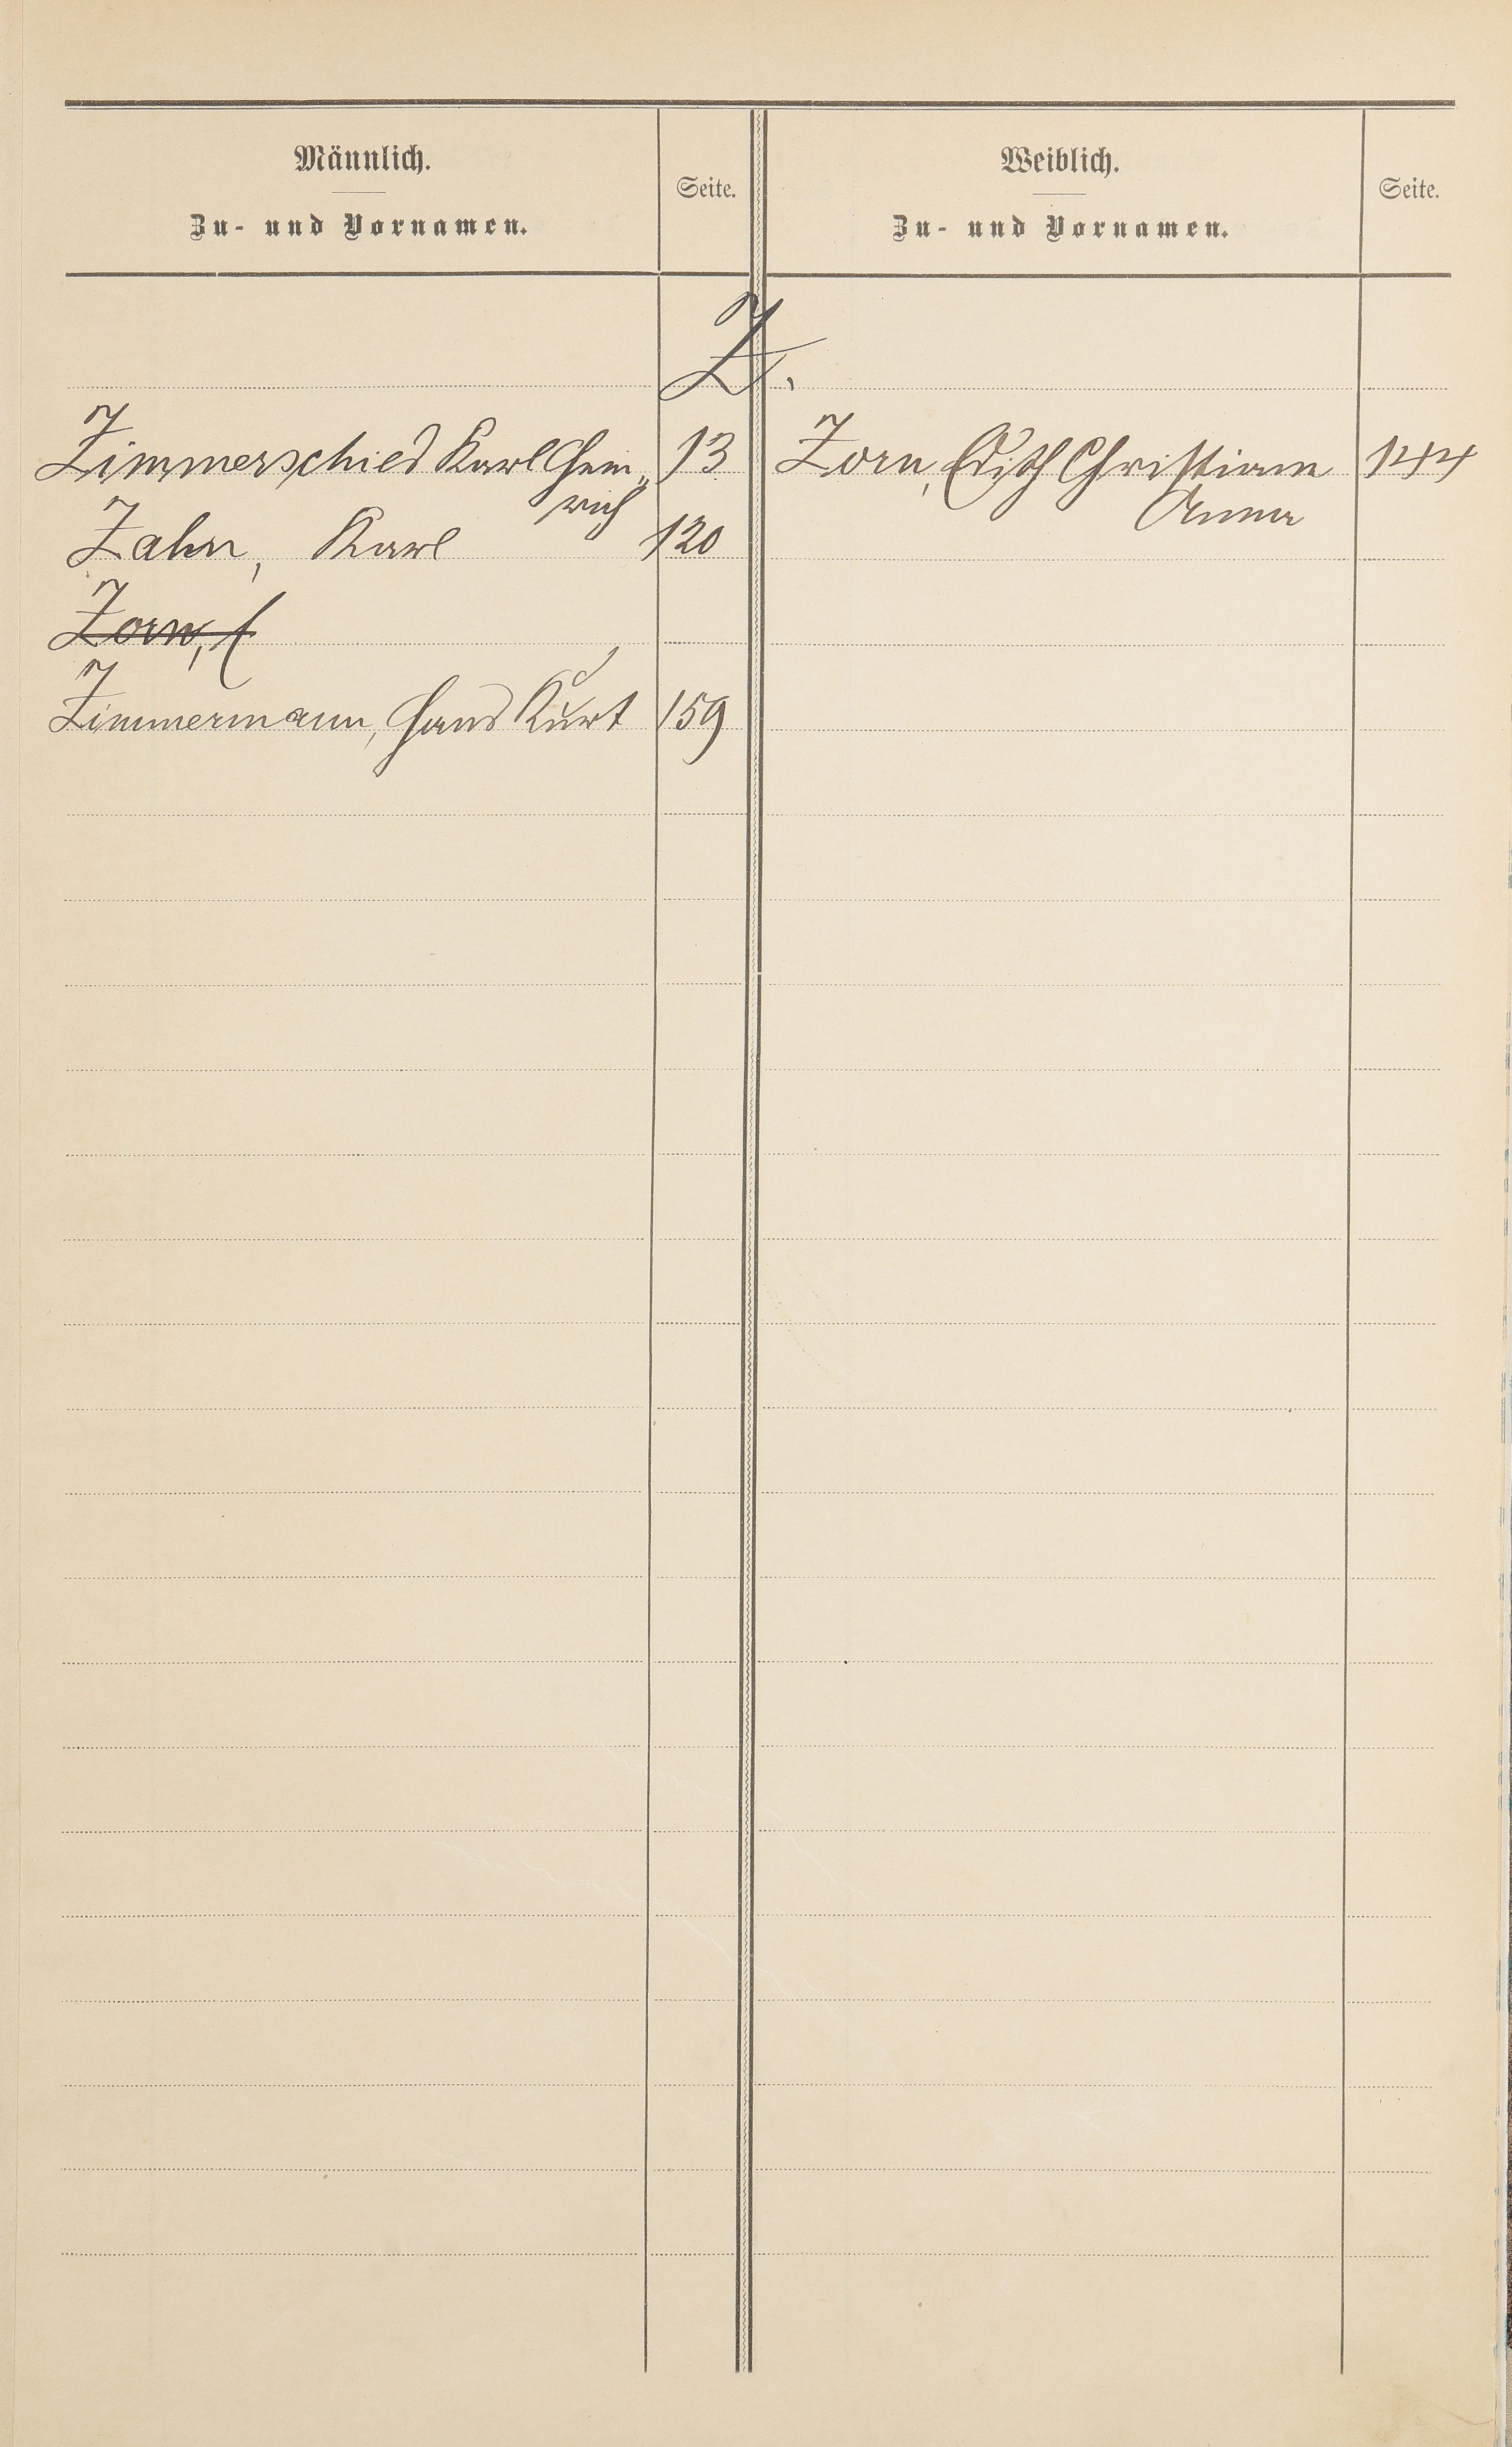 Männlich.
Zu- und Vornamen.
Seite.
Weiblich.
Zu- und Vornamen.
Seite.
Z.
Zimmerschied Karl Hein„ 13
rich
Zahn, Karl 120
Zorn, E
Zimmermann, Hans Kurt 159
Zorn, Edith Christiane 144
Anna